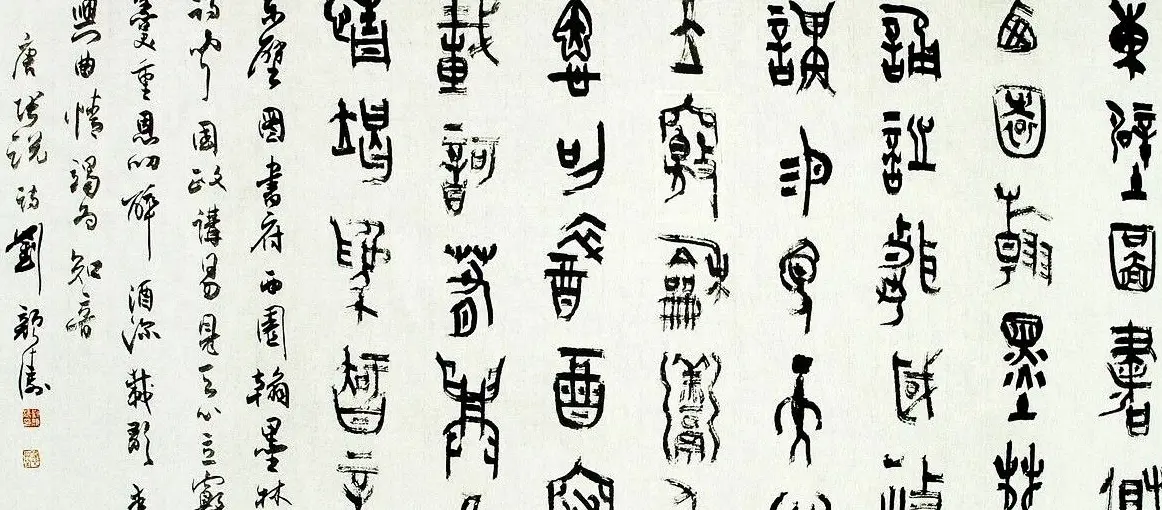 東壁圖書府
西園翰墨林
誦詩聞國政
講易見天心
立竊和羹重
恩叨醉酉深
載歌春興曲
情竭爲知音
東壁圖書府西園翰墨林
詩聞國政講易見天心立竊
羹重恩叨醉酒深載歌春
興曲情竭為知音
唐張說詩劉顏濤